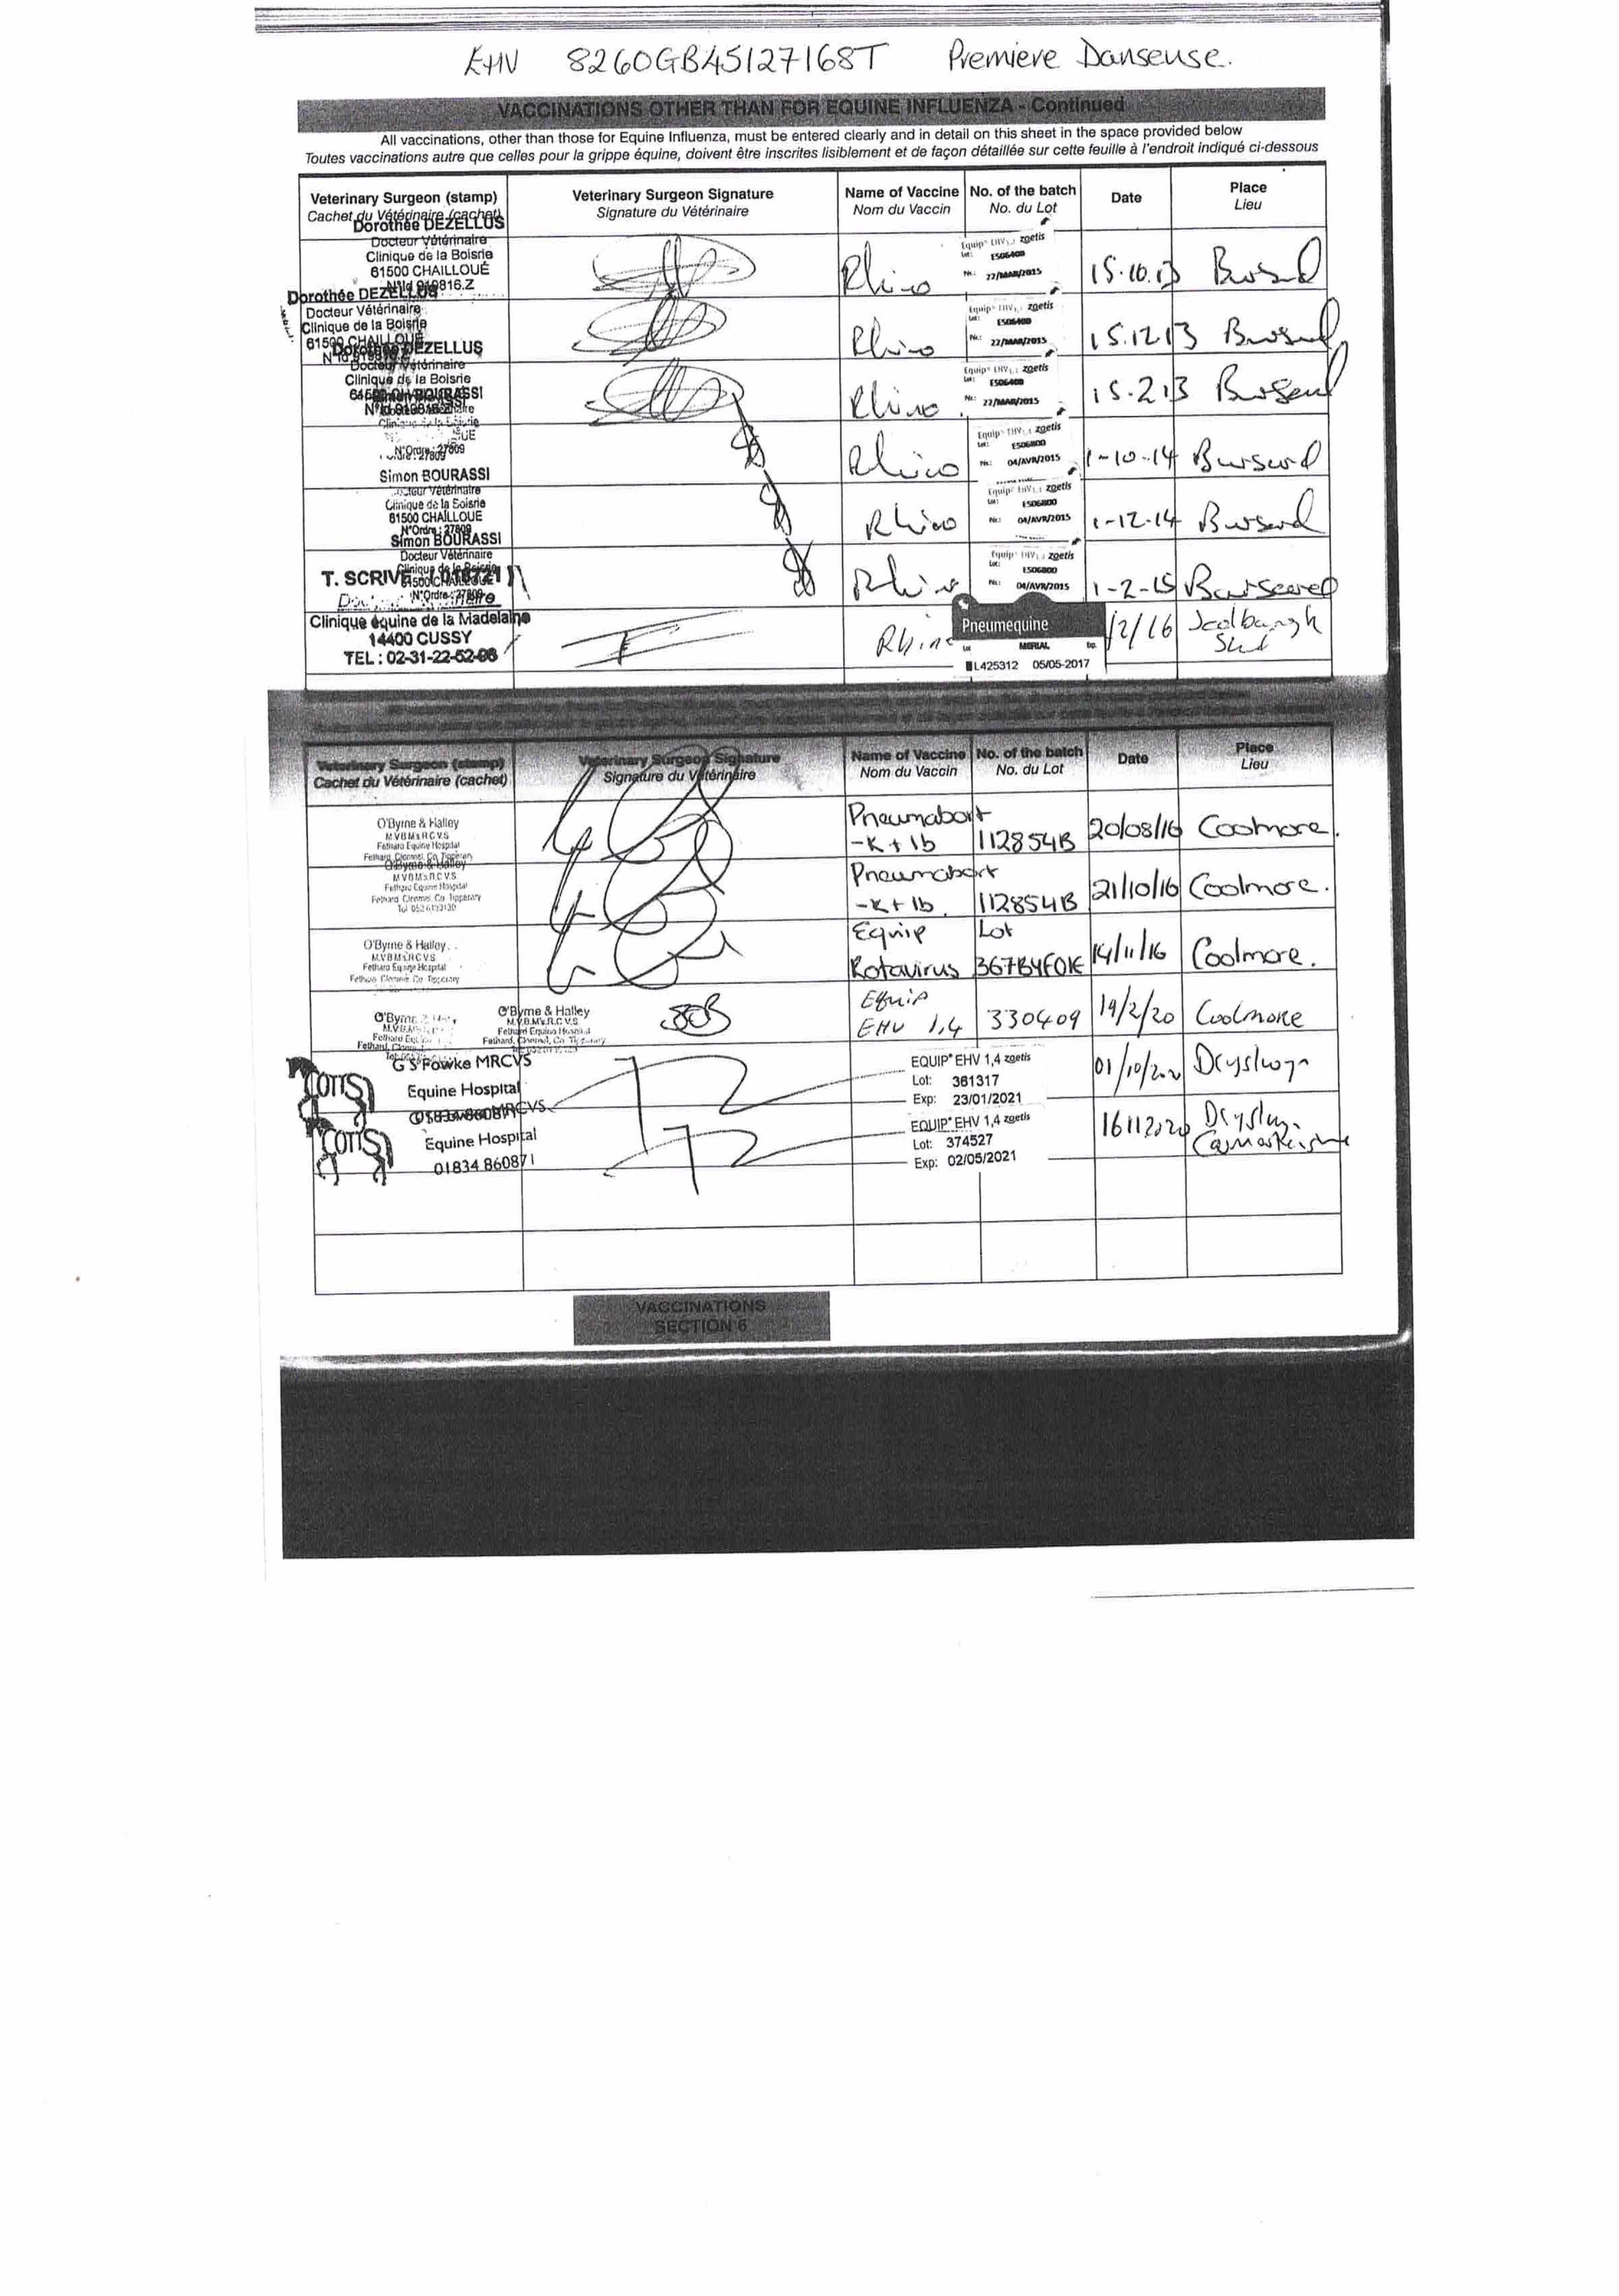 EHV 8260GB45127168T Premiere Danseuse.
VACCINATIONS OTHER THAN FOR EQUINE INFLUENZA - Continued
All vaccinations, other than those for Equine Influenza, must be entered clearly and in detail on this sheet in the space provided below
Toutes vaccinations autre que celles pour la grippe équine, doivent être inscrites lisiblement et de façon détaillée sur cette feuille à l'endroit indiqué ci-dessous
Veterinary Surgeon (stamp) Veterinary Surgeon Signature Name of Vaccine No. of the batch Date Place
Cachet du Vétérinaire (cachet) Signature du Vétérinaire Nom du Vaccin No. du Lot Lieu
Dorothée DEZELLUS
Docteur Vétérinaire
Clinique de la Boisrie
61500 CHAILLOUÉ
Rhino Equip EHV zoetis
Lot: E506400
22/MAR/2015
15.10.13
Dorothée DEZELLUS
Docteur Vétérinaire
Clinique de la Boisrie
61500 CHAILLOUÉ
Rhino Equip EHV zoetis
Lot: E506400
22/MAR/2015
15.12.13
Dorothée DEZELLUS
Docteur Vétérinaire
Clinique de la Boisrie
Rhino Equip EHV zoetis
Lot: E506400
22/MAR/2015
15.2.13
N°Ordre: 27809
Rhino Equip EHV zoetis
Lot: E506800
04/AVR/2015
1-10-14
Simon BOURASSI
Docteur Vétérinaire
Clinique de la Boisrie
61500 CHAILLOUE
N°Ordre: 27809
Rhino Equip EHV zoetis
Lot: E506800
04/AVR/2015
1-12-14
Simon BOURASSI
Docteur Vétérinaire
Clinique de la Boisrie
61500 CHAILLOUE
N°Ordre: 27809
Rhino Equip EHV zoetis
Lot: E506800
04/AVR/2015
1-2-15
T. SCRIVE
Clinique équine de la Madelaine
14400 CUSSY
TEL: 02-31-22-52-98
Rhino Pneumequine
MERIAL
L425312 05/05-2017
/2/16
Stud
Veterinary Surgeon (stamp) Veterinary Surgeon Signature Name of Vaccine No. of the batch Date Place
Cachet du Vétérinaire (cachet) Signature du Vétérinaire Nom du Vaccin No. du Lot Lieu
O'Byrne & Halley
M.V.B M's R.C.V.S
Fethard Equine Hospital
Fethard, Clonmel, Co Tipperary
Pneumabort
-K + 1b 112854B 20/08/16 Coolmore.
O'Byrne & Halley
M.V.B M's R.C.V.S
Fethard Equine Hospital
Fethard Clonmel, Co Tipperary
Pneumabort
-K + 1b. 112854B 21/10/16 Coolmore.
O'Byrne & Halley
M.V.B M's R.C.V.S
Fethard Equine Hospital
Fethard Clonmel Co Tipperary
Equip Lot
Rotavirus 367BYF01E 14/11/16 Coolmore.
O'Byrne & Halley
M.V.B.M's.R.C.V.S
Fethard Equine Hospital
Fethard, Clonmel, Co Tipperary
Equip
EHV 1,4 330409 19/2/20 Coolmore
G S Fowke MRCVS
COTTS Equine Hospital
01834 860871
EQUIP EHV 1,4 zoetis
Lot: 361317
Exp: 23/01/2021
01/10/2020
MRCVS
COTTS Equine Hospital
01834 860871
EQUIP EHV 1,4 zoetis
Lot: 374527
Exp: 02/05/2021
VACCINATIONS
SECTION 6